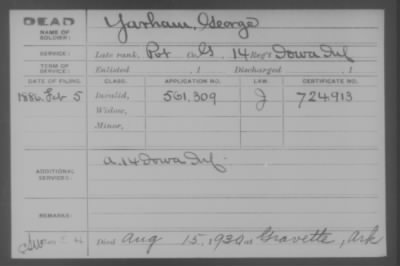 DEAD
NAME OF SOLDIER:
Yarham, George
SERVICE:
Late rank, Pvt Co. G, 14 Reg't Iowa Inf
TERM OF SERVICE:
Enlisted , 1 Discharged , 1
DATE OF FILING. CLASS. APPLICATION NO. LAW. CERTIFICATE NO.
1886 Feb 5 Invalid, 561,309 J 724,913
Widow,
Minor,
ADDITIONAL SERVICES:
A. 14 Iowa Inf.
REMARKS:
Died Aug 15, 1930, at Gravette, Ark